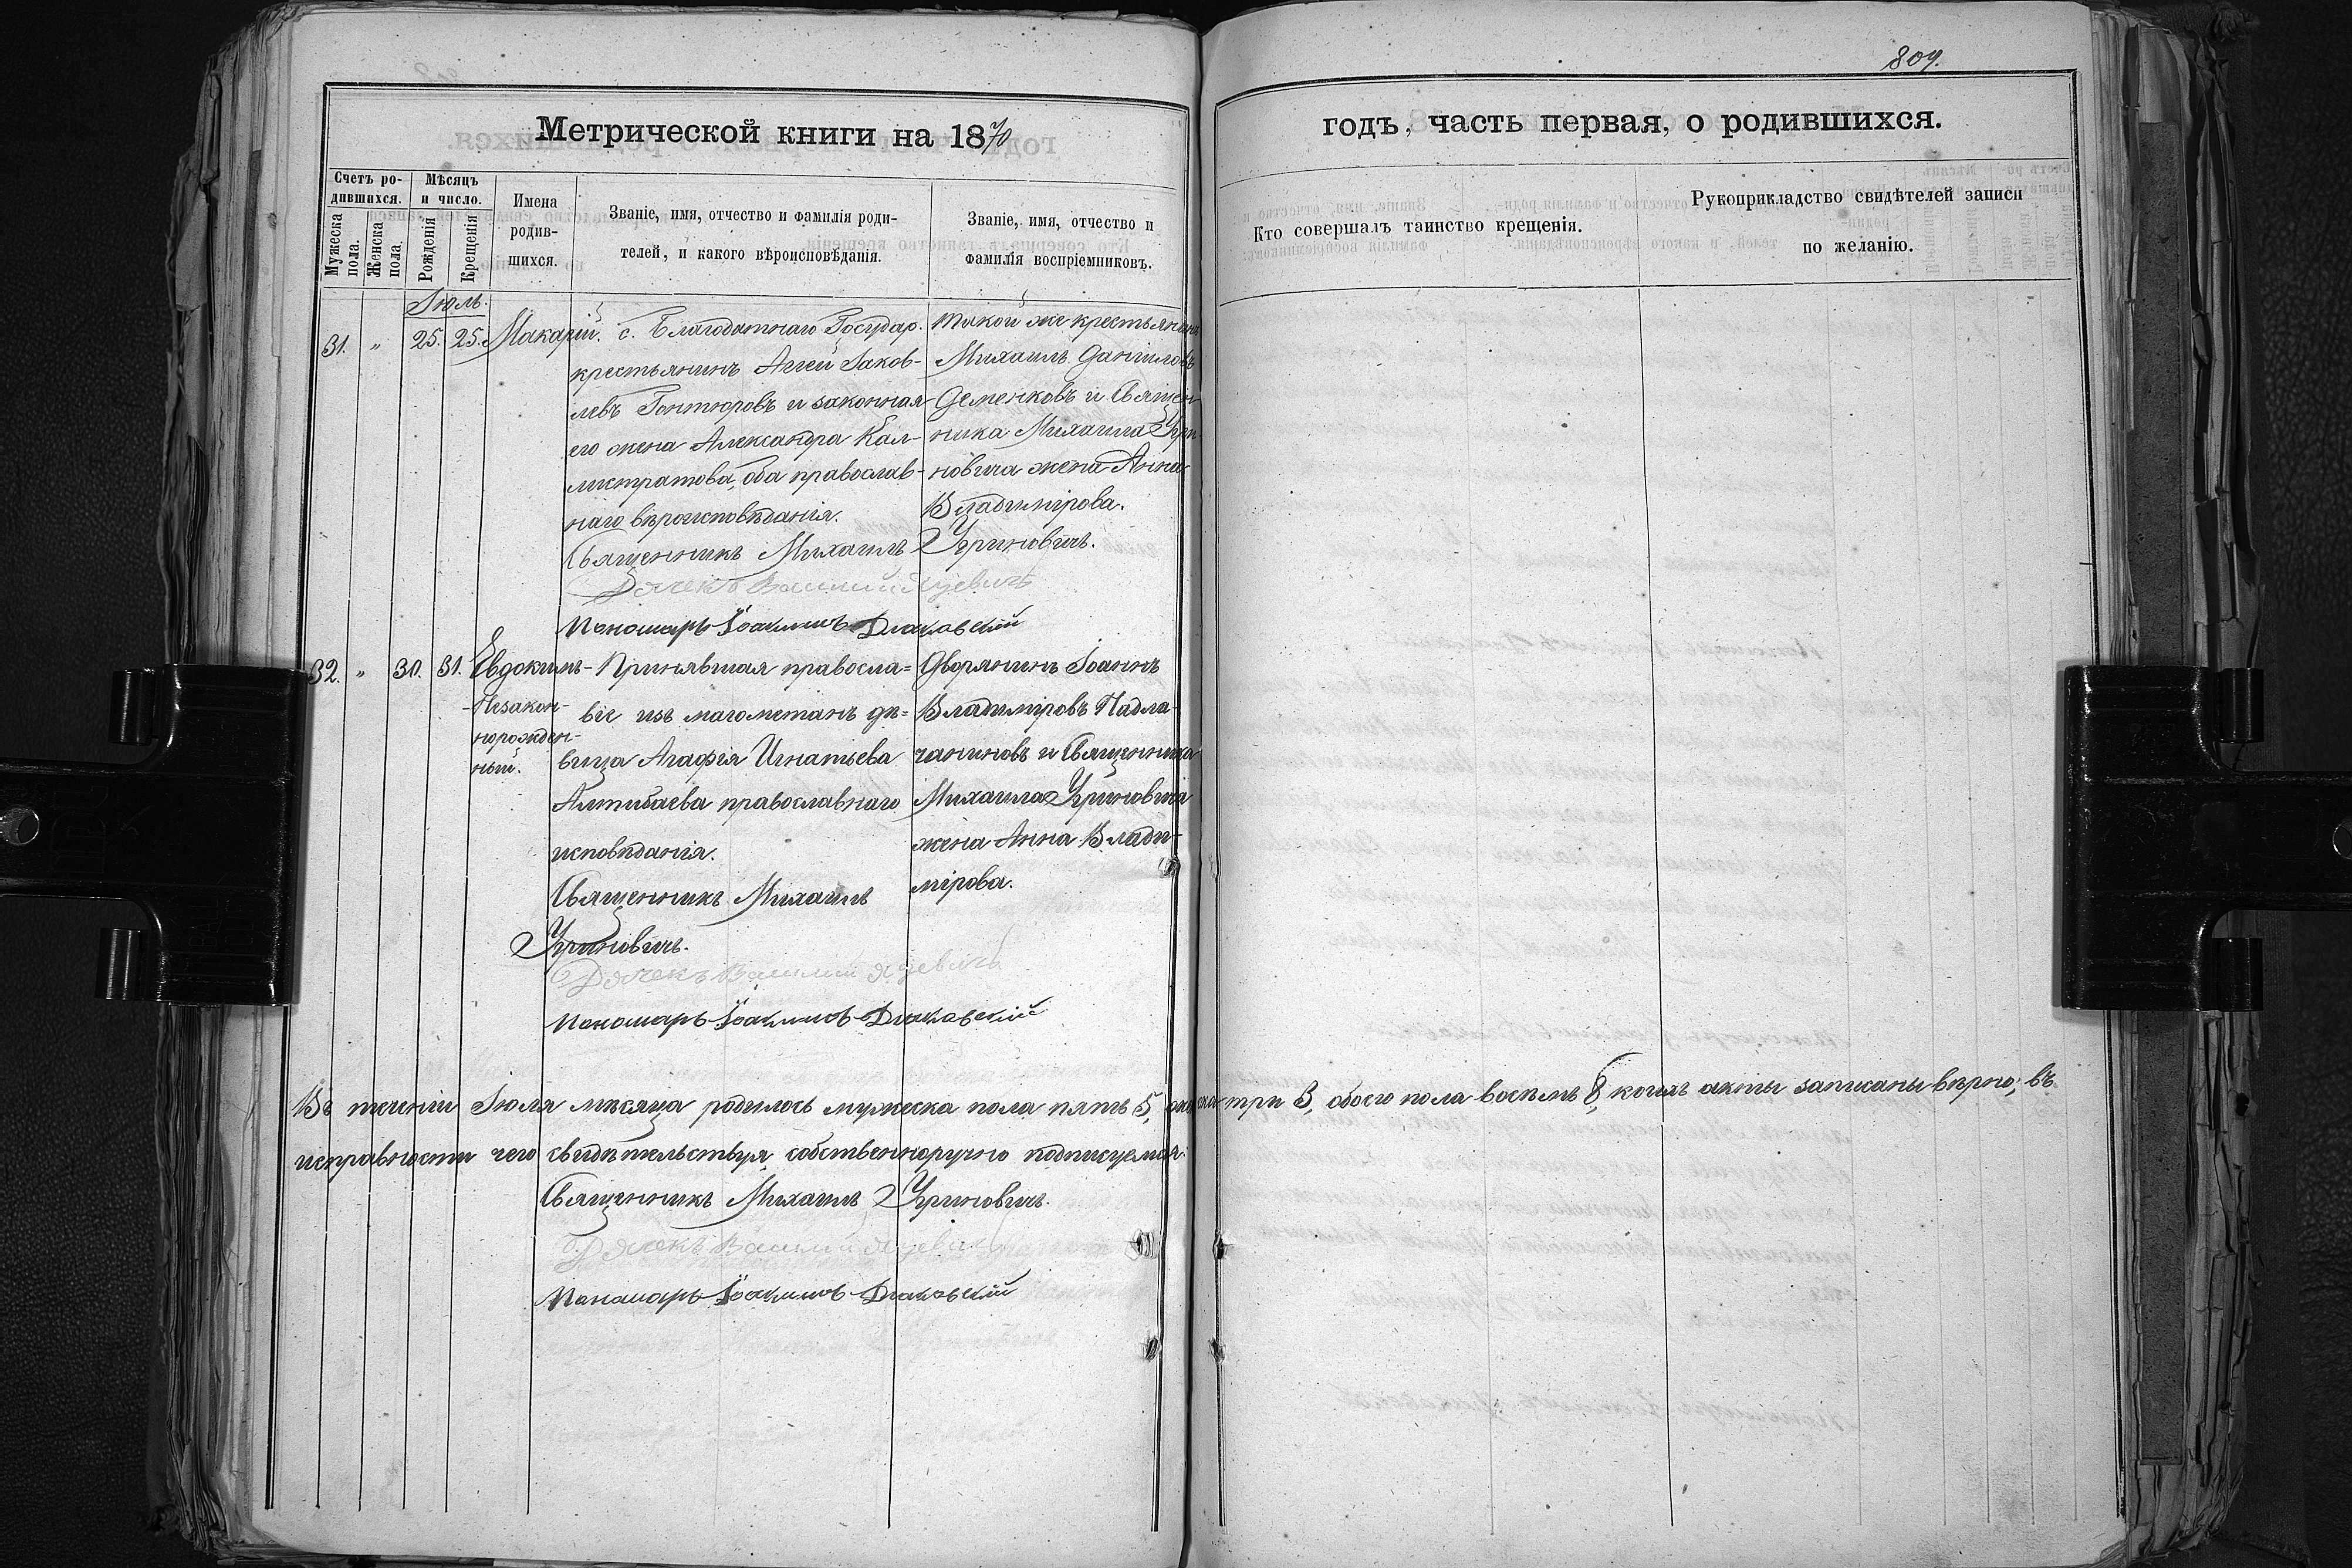 809.
Метрической книги на 1870
годъ, часть первая, о родившихся.
Счетъ ро-
дившихся.
Мужеска
пола.
Женска
пола.
Мѣсяцъ
и число.
Рожденія
Крещенія
Имена
родив-
шихся.
Званіе, имя, отчество и фамилія роди-
телей, и какого вѣроисповѣданія.
Званіе, имя, отчество и
фамилія воспріемниковъ.
Кто совершалъ таинство крещенія.
Рукоприкладство свидѣтелей записи
по желанію.
Іюль.
31. " 25. 25. Макарій.
с. Благодатнаго Государ.
крестьянинъ Аггей Іаков-
левъ Гонтюровъ и законная
его жена Александра Кал-
листратова, оба православ-
наго вѣроисповѣданія.
Такой же крестьянинъ
Михаилъ Даніиловъ
Деменковъ и Священ-
ника Михаила Угри-
новича жена Анна
Владимірова.
Священникъ Михаилъ Угриновичъ.
Дячекъ Василий
Пономарь Іоакимъ
32. " 30. 31. Евдокимъ-
-Незакон-
норожден-
ный.
Принявшая правосла=
віе изъ магометанъ дѣ=
вица Агафія Игнатьева
Алтибаева православнаго
исповѣданія.
Дворянинъ Іоаннъ
Владиміровъ Падла-
чаниновъ и Священника
Михаила Угриновича
жена Анна Влади-
мірова.
Священникъ Михаилъ
Угриновичъ.
Дячекъ Василий
Пономарь Іоакимъ
Въ теченіи Іюля мѣсяца родилось мужеска пола пять 5, женска три 3, обоего пола восѣмь 8, коихъ акты записаны вѣрно; въ
исправности чего свидѣтельствуя собственноручно подписуемся.
Священникъ Михаилъ Угриновичъ.
Дячекъ Василий
Пономарь Іоакимъ